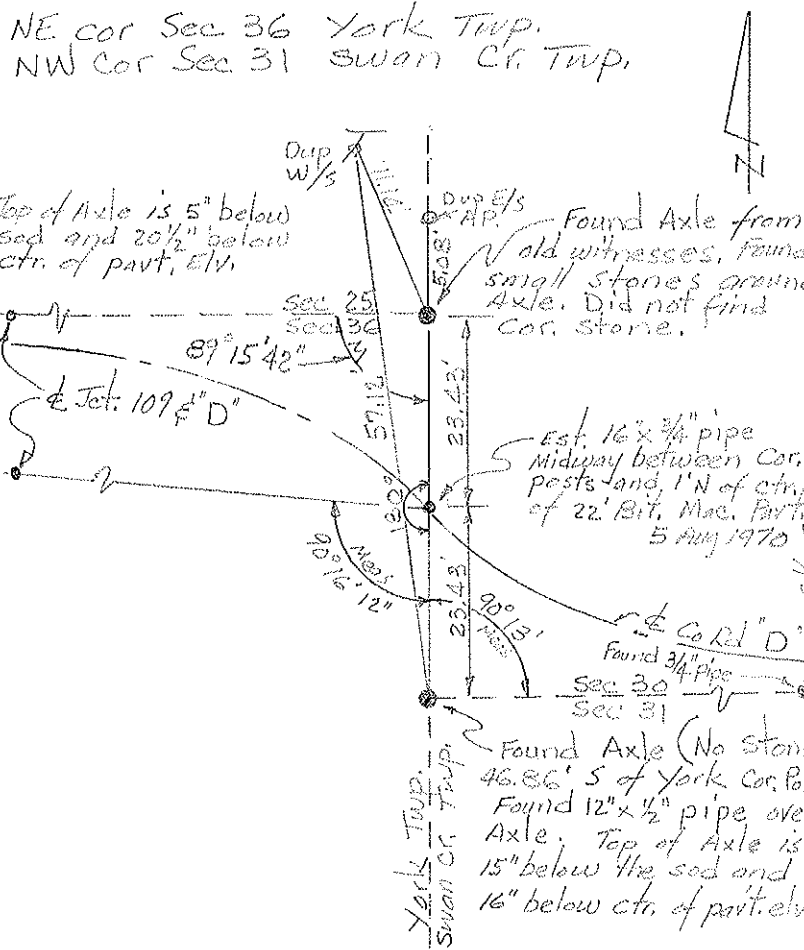 NE cor Sec 36 York Twp.
NW Cor Sec 31 Swan Cr. Twp.
N
Dup
W/s
11.16
Dup E/s
A.P.
5.08'
Top of Axle is 5" below
sod and 20½" below
ctr. of pavt. Elv.
Found Axle from
old witnesses. Found
small stones around
Axle. Did not find
Cor. Stone.
Sec 25
Sec 36
89° 15' 42"
57.12
23.43'
℄ Jct. 109 & "D"
Est. 16" x ¾" pipe
Midway between Cor.
posts and 1' N of ctr.
of 22' Bit. Mac. Pavt.
5 Aug 1970
180°
90° 16' 12"
Meas
23.43'
90° 13'
Meas
℄ Co Rd "D"
Found ¾" Pipe
Sec 30
Sec 31
Found Axle (No Ston
46.86' S of York Cor. Po
Found 12" x ½" pipe ove
Axle. Top of Axle is
15" below the sod and
16" below ctr. of pavt. elv
York Twp.
Swan Cr. Twp.